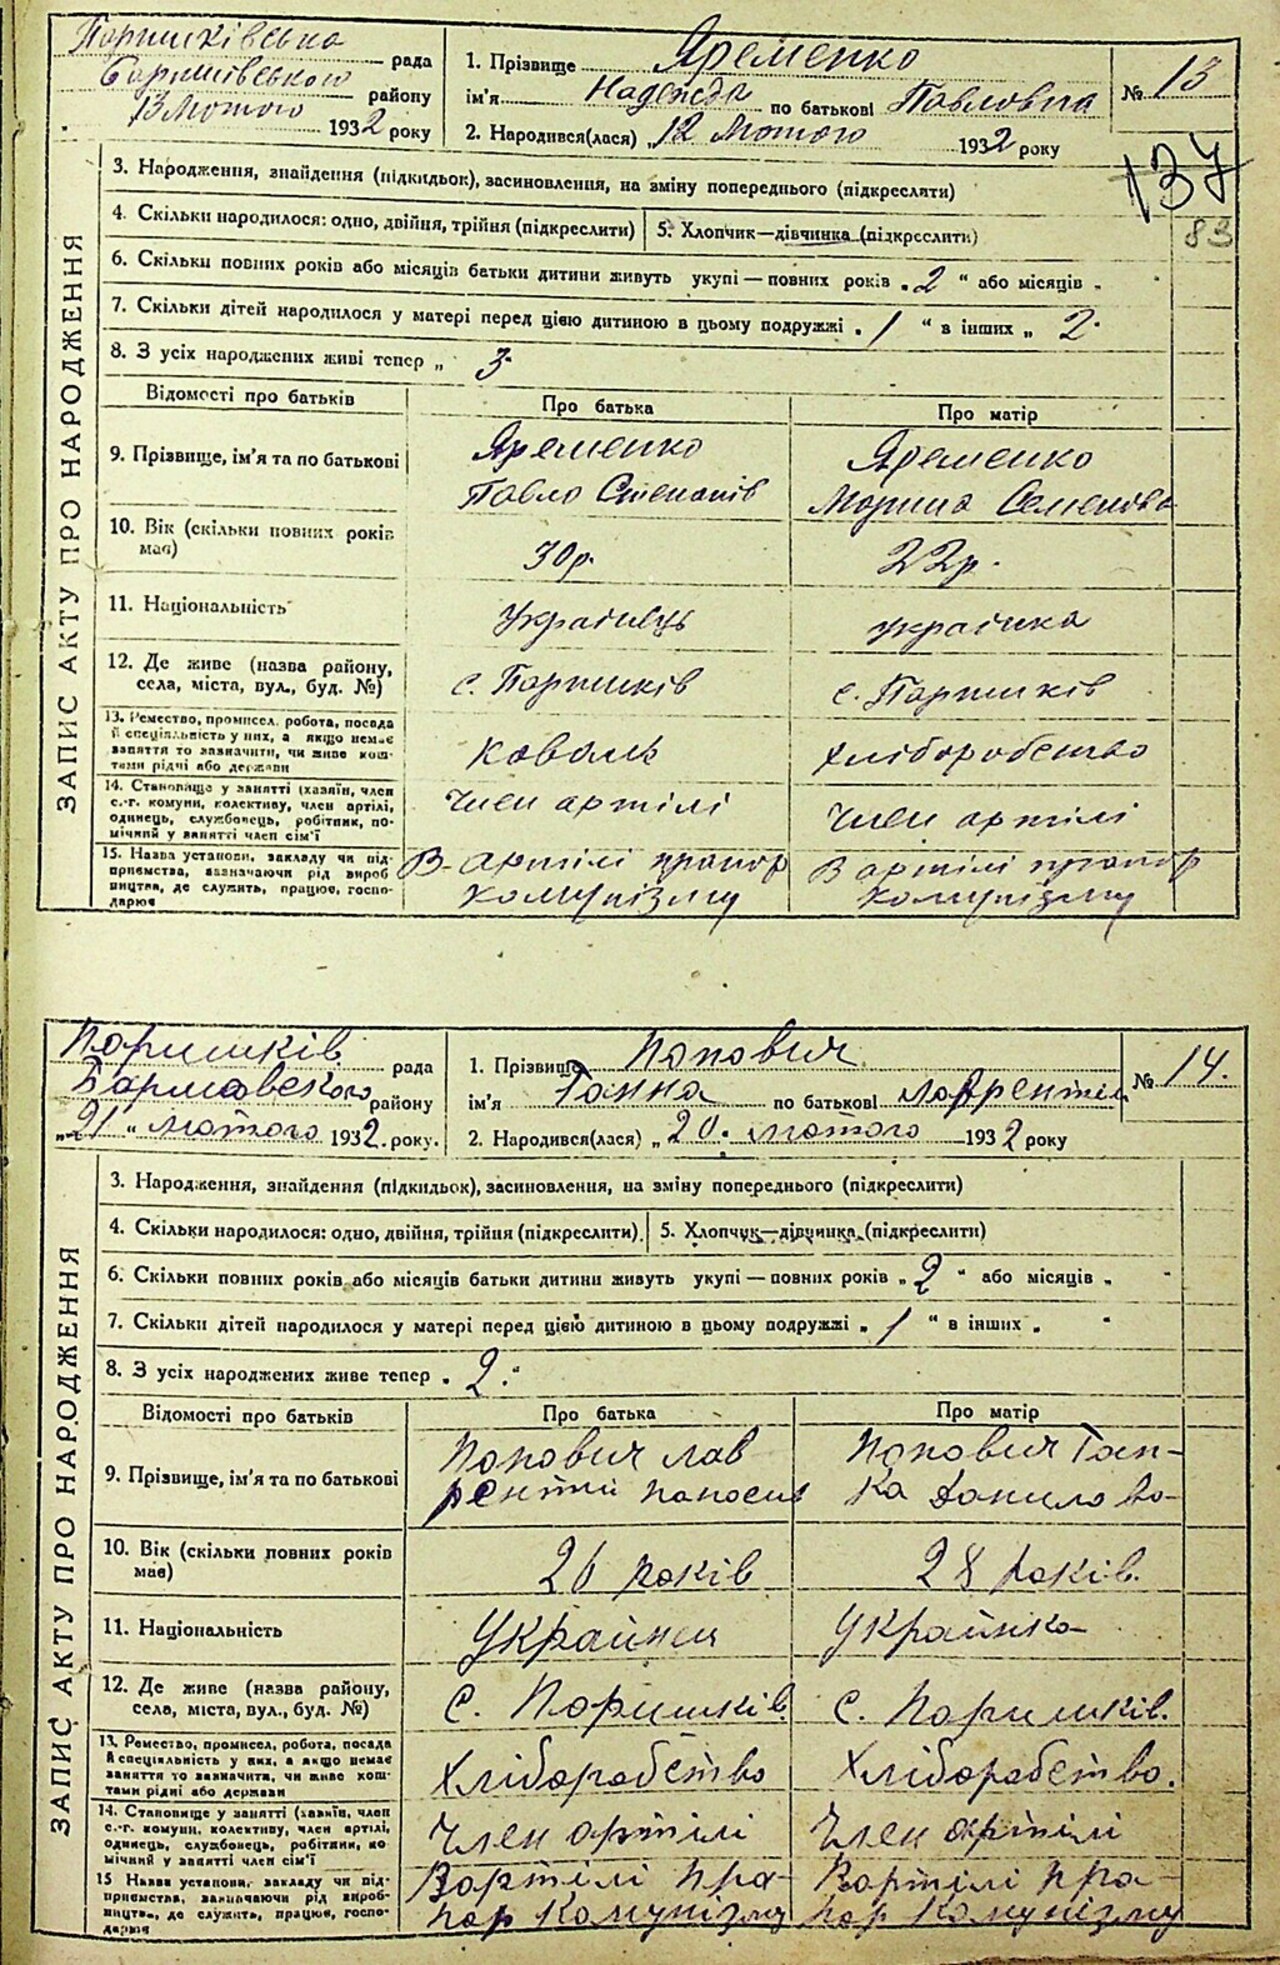 Паришківська рада
Баришівського району
13 Лютого 1932 року
1. Прізвище Яременко
ім'я Надежда по батькові Павловна
2. Народився(лася) „12 Лютого 1932 року
№ 13
137
83
ЗАПИС АКТУ ПРО НАРОДЖЕННЯ
3. Народження, знайдення (підкидьок), засиновлення, на зміну попереднього (підкреслити)
4. Скільки народилося: одно, двійня, трійня (підкреслити)
5. Хлопчик—дівчинка (підкреслити)
6. Скільки повних років або місяців батьки дитини живуть укупі — повних років „2“ або місяців „
7. Скільки дітей народилося у матері перед цією дитиною в цьому подружжі „1“ в інших „2“
8. З усіх народжених живі тепер „3“
Відомості про батьків
Про батька
Про матір
9. Прізвище, ім'я та по батькові
Яременко
Павло Степанів
Яременко
Марина Семенова
10. Вік (скільки повних років
має)
30р.
22р.
11. Національність
Українець
українка
12. Де живе (назва району,
села, міста, вул., буд. №)
с. Паришків
с. Паришків
13. Ремество, промисел, робота, посада
й спеціяльність у них, а якщо немає
заняття то зазначити, чи живе кош-
тами рідні або держави
Коваль
Хліборобство
14. Становище у занятті (хазяїн, член
с.-г. комуни, колективу, член артілі,
одинець, службовець, робітник, по-
мічний у занятті член сім'ї
Член артілі
Член артілі
15. Назва установи, закладу чи під-
приємства, зазначаючи рід вироб
ництва, де служить, працює, госпо-
дарює
В артілі прапор
комунізму
В артілі прапор
комунізму
Паришків. рада
Баришавського району
„21“ лютого 1932. року.
1. Прізвище Попович
ім'я Ганна по батькові Лаврентіи
2. Народився(лася) „20. лютого 1932 року
№ 14.
ЗАПИС АКТУ ПРО НАРОДЖЕННЯ
3. Народження, знайдення (підкидьок), засиновлення, на зміну попереднього (підкреслити)
4. Скільки народилося: одно, двійня, трійня (підкреслити).
5. Хлопчик—дівчинка (підкреслити)
6. Скільки повних років або місяців батьки дитини живуть укупі — повних років „2“ або місяців „ “
7. Скільки дітей народилося у матері перед цією дитиною в цьому подружжі „1“ в інших „ “
8. З усіх народжених живе тепер „2“
Відомості про батьків
Про батька
Про матір
9. Прізвище, ім'я та по батькові
Попович Лав
рентій Панасив
Попович Ган-
ка Данилова
10. Вік (скільки повних років
має)
26 років
28 років.
11. Національність
Українец
Українка
12. Де живе (назва району,
села, міста, вул., буд. №)
С. Паришків.
С. Паришків.
13. Ремество, промисел, робота, посада
й спеціяльність у них, а якщо немає
заняття то зазначити, чи живе кош-
тами рідні або держави
Хліборабство
Хліборабство.
14. Становище у занятті (хазяїн, член
с.-г. комуни, колективу, член артілі,
одинець, службовець, робітник, по
мічний у занятті член сім'ї
Член артілі
Член артілі
15 Назва установи, закладу чи під-
приємства, зазначаючи рід вироб-
ництва, де служить, працює, госпо-
дарює
Вартілі пра-
пор Комунізму
Вартілі пра-
пор Комунізму